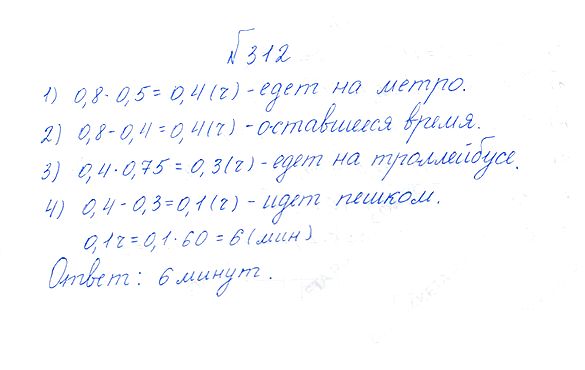 №312
1) 0,8·0,5=0,4(ч)-едет на метро.
2) 0,8-0,4=0,4(ч)-оставшееся время.
3) 0,4·0,75=0,3(ч)-едет на троллейбусе.
4) 0,4-0,3=0,1(ч)-идет пешком.
0,1ч=0,1·60=6(мин)
Ответ: 6 минут.